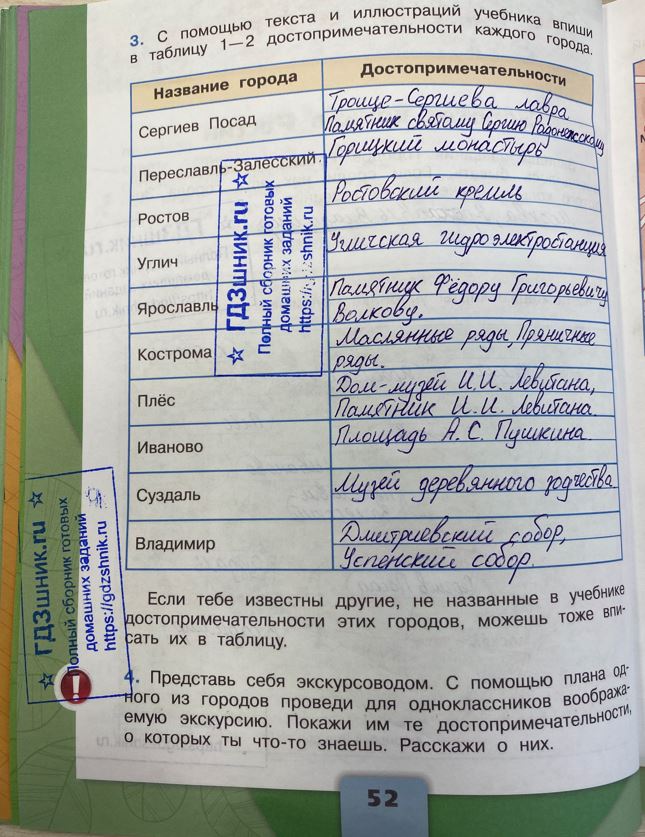 3. С помощью текста и иллюстраций учебника впиши
в таблицу 1—2 достопримечательности каждого города.
Название города
Достопримечательности
Сергиев Посад
Троице-Сергиева лавра
Памятник святому Сергию Радонежскому
Переславль-Залесский
Горицкий монастырь
Ростов
Ростовский кремль
Углич
Угличская гидроэлектростанция
Ярославль
Памятник Фёдору Григорьевичу
Волкову.
Кострома
Маслянные ряды, Пряничные
ряды.
Плёс
Дом-музей И.И. Левитана,
Памятник И.И. Левитана
Иваново
Площадь А.С. Пушкина.
Суздаль
Музей деревянного зодчества
Владимир
Дмитриевский собор,
Успенский собор.
ГДЗшник.ru
Полный сборник готовых
домашних заданий
https://gdzshnik.ru
Если тебе известны другие, не названные в учебнике
достопримечательности этих городов, можешь тоже впи-
сать их в таблицу.
ГДЗшник.ru
Полный сборник готовых
домашних заданий
https://gdzshnik.ru
4. Представь себя экскурсоводом. С помощью плана од-
ного из городов проведи для одноклассников вообража-
емую экскурсию. Покажи им те достопримечательности,
о которых ты что-то знаешь. Расскажи о них.
52